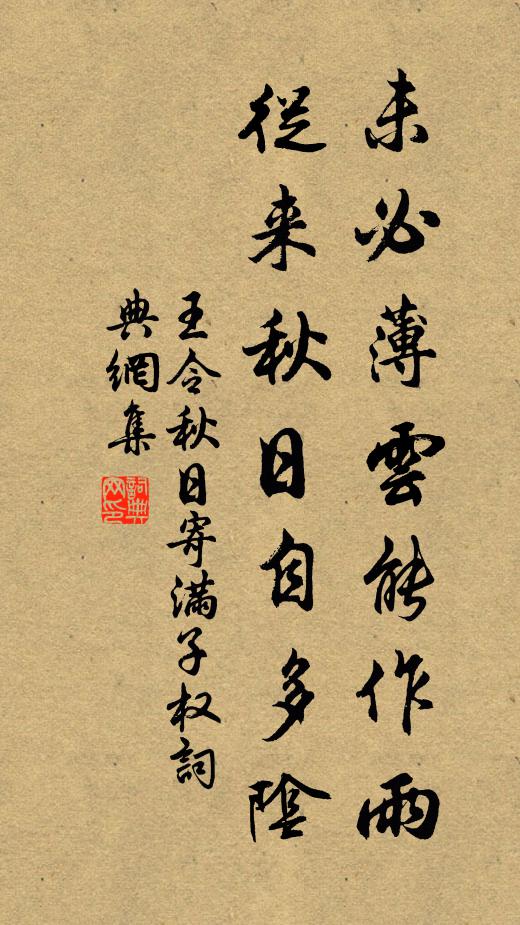 未必薄雲能作雨
從来秋日自多陰
王令秋日寄滿子权詞
典網集
詞典网印